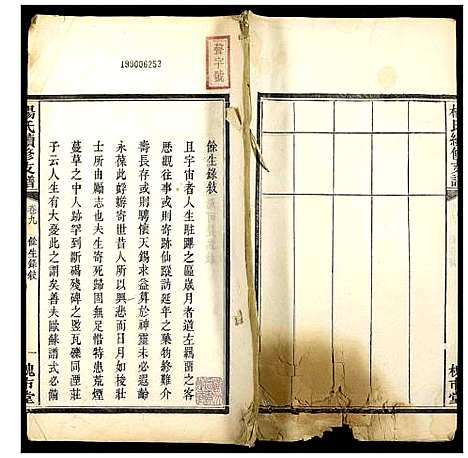 楊氏續修支譜
槐市堂
聲字號
199006253
餘生錄敍
且宇宙者人生駐蹕之區歲月者道左羈蕩之客
歷觀往事可寄跡仙蹤訪延年之藥物終難介
壽長存或則騁懷天錫求益算於神靈未必遐齡
永葆此蜉蝣寄世昔人所以興悲而日月如梭壯
士所由勵志也夫生寄死歸固無足惜特患荒煙
蔓草之中人跡罕到斷碣殘碑之叕瓦礫同湮莊
子云人生有大憂此之謂矣善夫歐蘇譜式必備
楊氏續修支譜
卷九
餘生錄敍
一
槐市堂